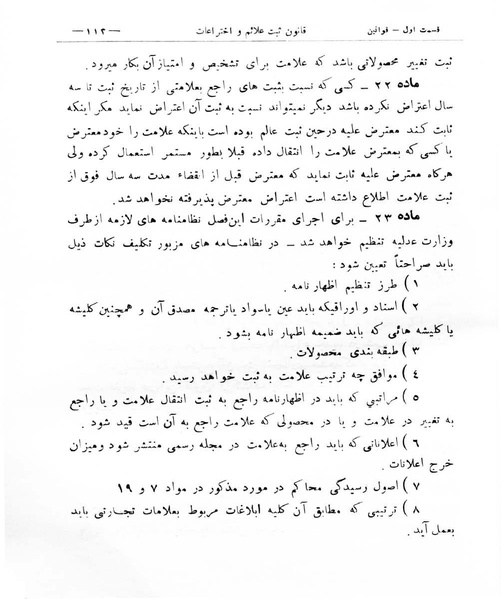 قسمت اول — قوانین
قانون ثبت علائم و اختراعات
— ۱۱۳ —
ثبت تغییر محصولاتی باشد که علامت برای تشخیص و امتیاز آن بکار میرود.
ماده ۲۲ — کسی که نسبت بثبت های راجع بعلامتی از تاریخ ثبت تا سه
سال اعتراض نکرده باشد دیگر نمیتواند نسبت به ثبت آن اعتراض نماید مگر اینکه
ثابت کند معترض علیه درحین ثبت عالم بوده است باینکه علامت را خود معترض
یا کسی که بمعترض علامت را انتقال داده قبلا بطور مستمر استعمال کرده ولی
هرگاه معترض علیه ثابت نماید که معترض قبل از انقضاء مدت سه سال فوق از
ثبت علامت اطلاع داشته است اعتراض معترض پذیرفته نخواهد شد.
ماده ۲۳ — برای اجرای مقررات این فصل نظامنامه های لازمه از طرف
وزارت عدلیه تنظیم خواهد شد — در نظامنامه های مزبور تکلیف نکات ذیل
باید صراحتاً تعیین شود :
۱ ) طرز تنظیم اظهار نامه .
۲ ) اسناد و اوراقیکه باید عین یاسواد یاترجمه مصدق آن و همچنین کلیشه
یا کلیشه هائی که باید ضمیمه اظهار نامه بشود .
۳ ) طبقه بندی محصولات .
٤ ) موافق چه ترتیب علامت به ثبت خواهد رسید .
٥ ) مراتبی که باید در اظهارنامه راجع به ثبت انتقال علامت و یا راجع
به تغییر در علامت و یا در محصولی که علامت راجع به آن است قید شود .
٦ ) اعلاناتی که باید راجع به‌علامت در مجله رسمی منتشر شود ومیزان
خرج اعلانات .
۷ ) اصول رسیدگی محاکم در مورد مذکور در مواد ۷ و ۱۹
۸ ) ترتیبی که مطابق آن کلیه ابلاغات مربوط بعلامات تجارتی باید
بعمل آید .